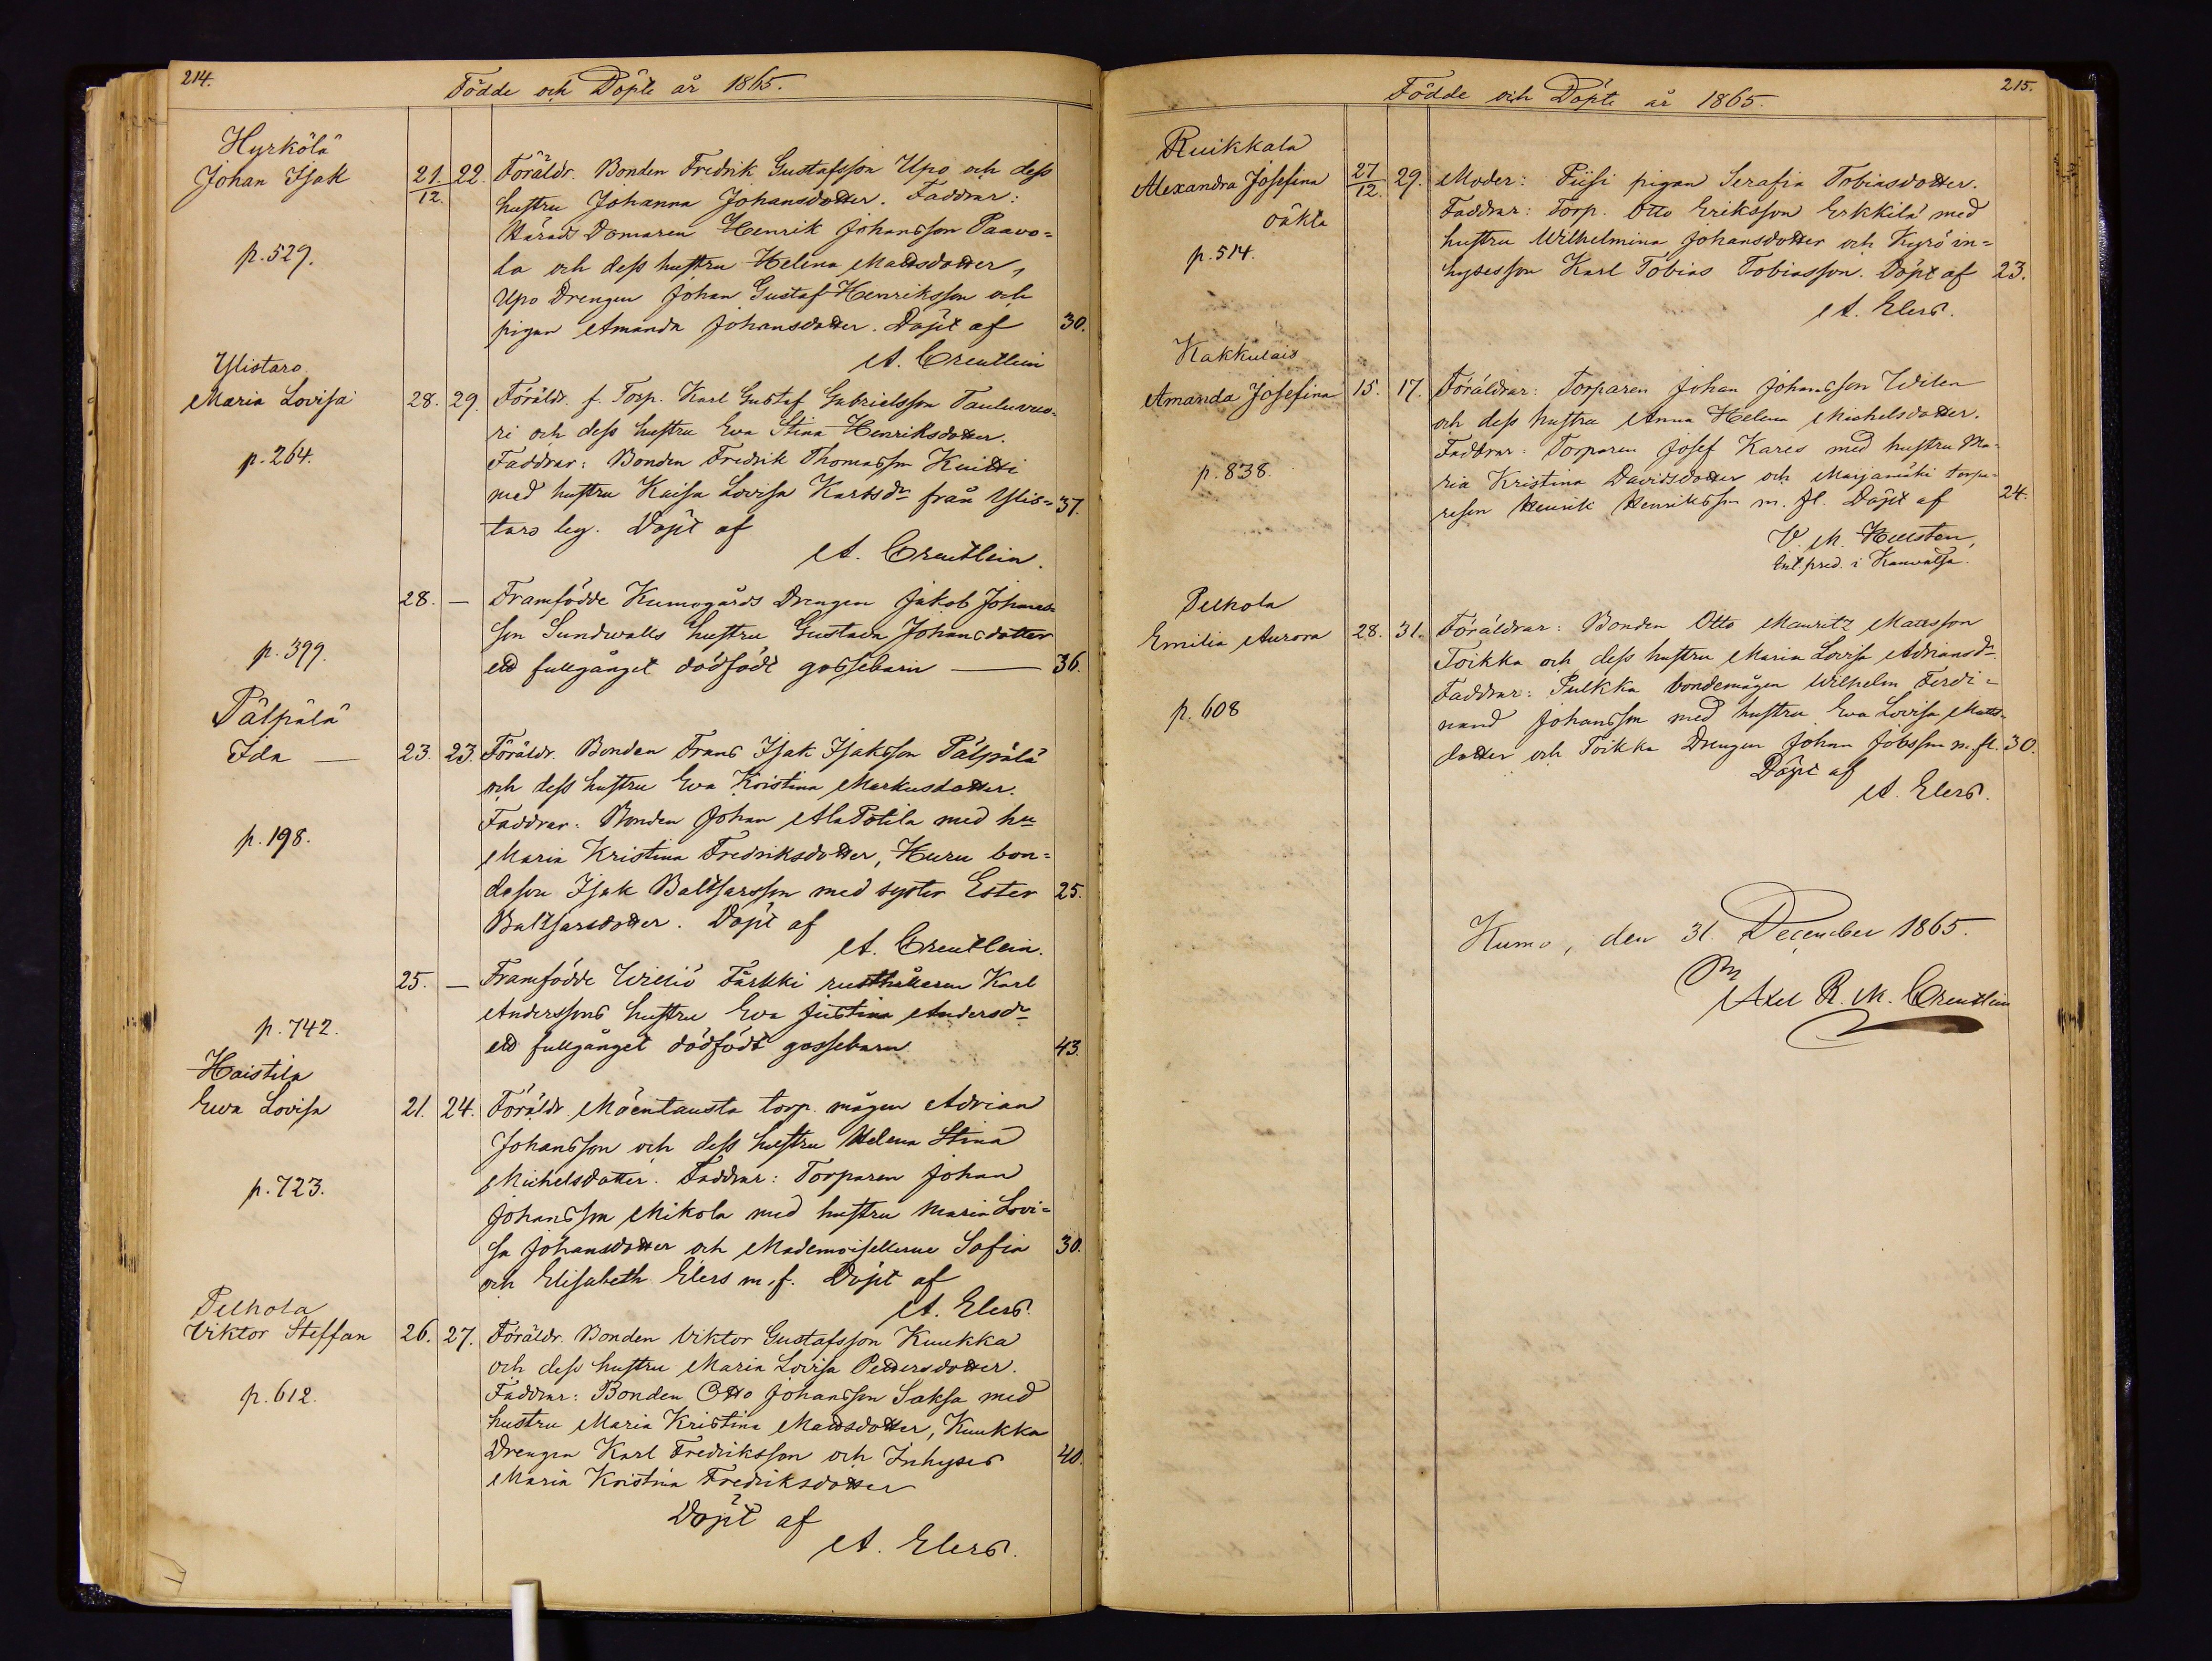 214.
Födde och Döpte år 1865.
Hyrkölä
Johan Isak 21. 22. Föräldr. Bonden Fredrik Gustafsson Upo och dess
12. hustru Johanna Johansdotter. Faddrar:
Härads Domaren Henrik Johansson Paavo-
p. 529. la och dess hustru Helena Mattsdotter,
Upo Drengen Johan Gustaf Henriksson och
pigan Amanda Johansdotter. Döpt af 30.
A. Creutlein
Ylistaro
Maria Lovisa 28. 29. Föräldr. f. Torp. Karl Gustaf Gabrielsson Tauluvuo-
ri och dess hustru Eva Stina Henriksdotter.
p. 264. Faddrar: Bonden Fredrik Thomasson Knitti
med hustru Kaisa Lovisa Karlsdr från Ylis- 37.
taro by. Döpt af
A. Creutlein.
28. — Framfödde Kumogårds Drengen Jakob Johans-
son Sundwalls hustru Gustava Johansdotter
p. 399. ett fullgånget dödfödt gossebarn — 36.
Pälpälä
Ida — 23. 23. Föräldr. Bonden Frans Isak Isaksson Pälpälä
och dess hustru Eva Kristina Markusdotter.
Faddrar: Bonden Johan AlaPotila med hu
p. 198. Maria Kristina Fredriksdotter, Kuru bon-
deson Isak Baltsarsson med syster Ester 25.
Baltsarsdotter. Döpt af
A. Creutlein.
25. — Framfödde Williö Färkki rusthållaren Karl
Anderssons hustru Eva Justina Andersdr
p. 742. ett fullgånget dödfödt gossebarn 43.
Haistila
Ewa Lovisa 21. 24. Föräldr. Mäentausta torp. mågen Adrian
Johansson och dess hustru Helena Stina
Michelsdotter. Faddrar: Torparen Johan
p. 723. Johansson Mikola med hustru Maria Lovi-
sa Johansdotter och Mademoisellerne Sofia 30.
och Elisabeth Elers m. f. Döpt af
A. Elers.
Pelhola
Viktor Steffan 26. 27. Föräldr. Bonden Viktor Gustafsson Kuukka
och dess hustru Maria Lovisa Pettersdotter.
p. 612. Faddrar: Bonden Otto Johansson Saksa med
hustru Maria Kristina Mattsdotter, Kuukka
Drengen Karl Fredriksson och Inhyses 40.
Maria Kristina Fredriksdotter
Döpt af
A. Elers.
215.
Födde och Döpte år 1865.
Ruikkala
Alexandra Josefina 27 29. Moder: Piisi pigan Serafia Tobiasdotter.
oäkta 12. Faddrar: Torp. Otto Eriksson Erkkilä med
hustru Wilhelmina Johansdotter och Kyrö in-
p. 514. hysesson Karl Tobias Tobiasson. Döpt af 23.
A. Elers.
Kakkulais
Amanda Josefina 15. 17. Föräldrar: Torparen Johan Johansson Wilen
och dess hustru Anna Helena Michelsdotter.
Faddrar: Torparen Josef Kares med hustru Ma-
p. 838. ria Kristina Davidsdotter och Marjamäki torpa-
reson Henrik Henriksson m. fl. Döpt af 24.
V. M. Kellsten,
Ext. pred. i Kauvatsa.
Pelhola
Emilia Aurora 28. 31. Föräldrar: Bonden Otto Mauritz Matsson
Toikka och dess hustru Maria Lovisa Adriansdr.
Faddrar: Pulkka bondemågen Wilhelm Ferdi-
p. 608 nand Johansson med hustru Eva Lovisa Matts-
dotter och Toikka Drengen Johan Jobsson m. fl. 30.
Döpt af
A. Elers.
Kumo, den 31 December 1865.
Axel R. M. Creutlein